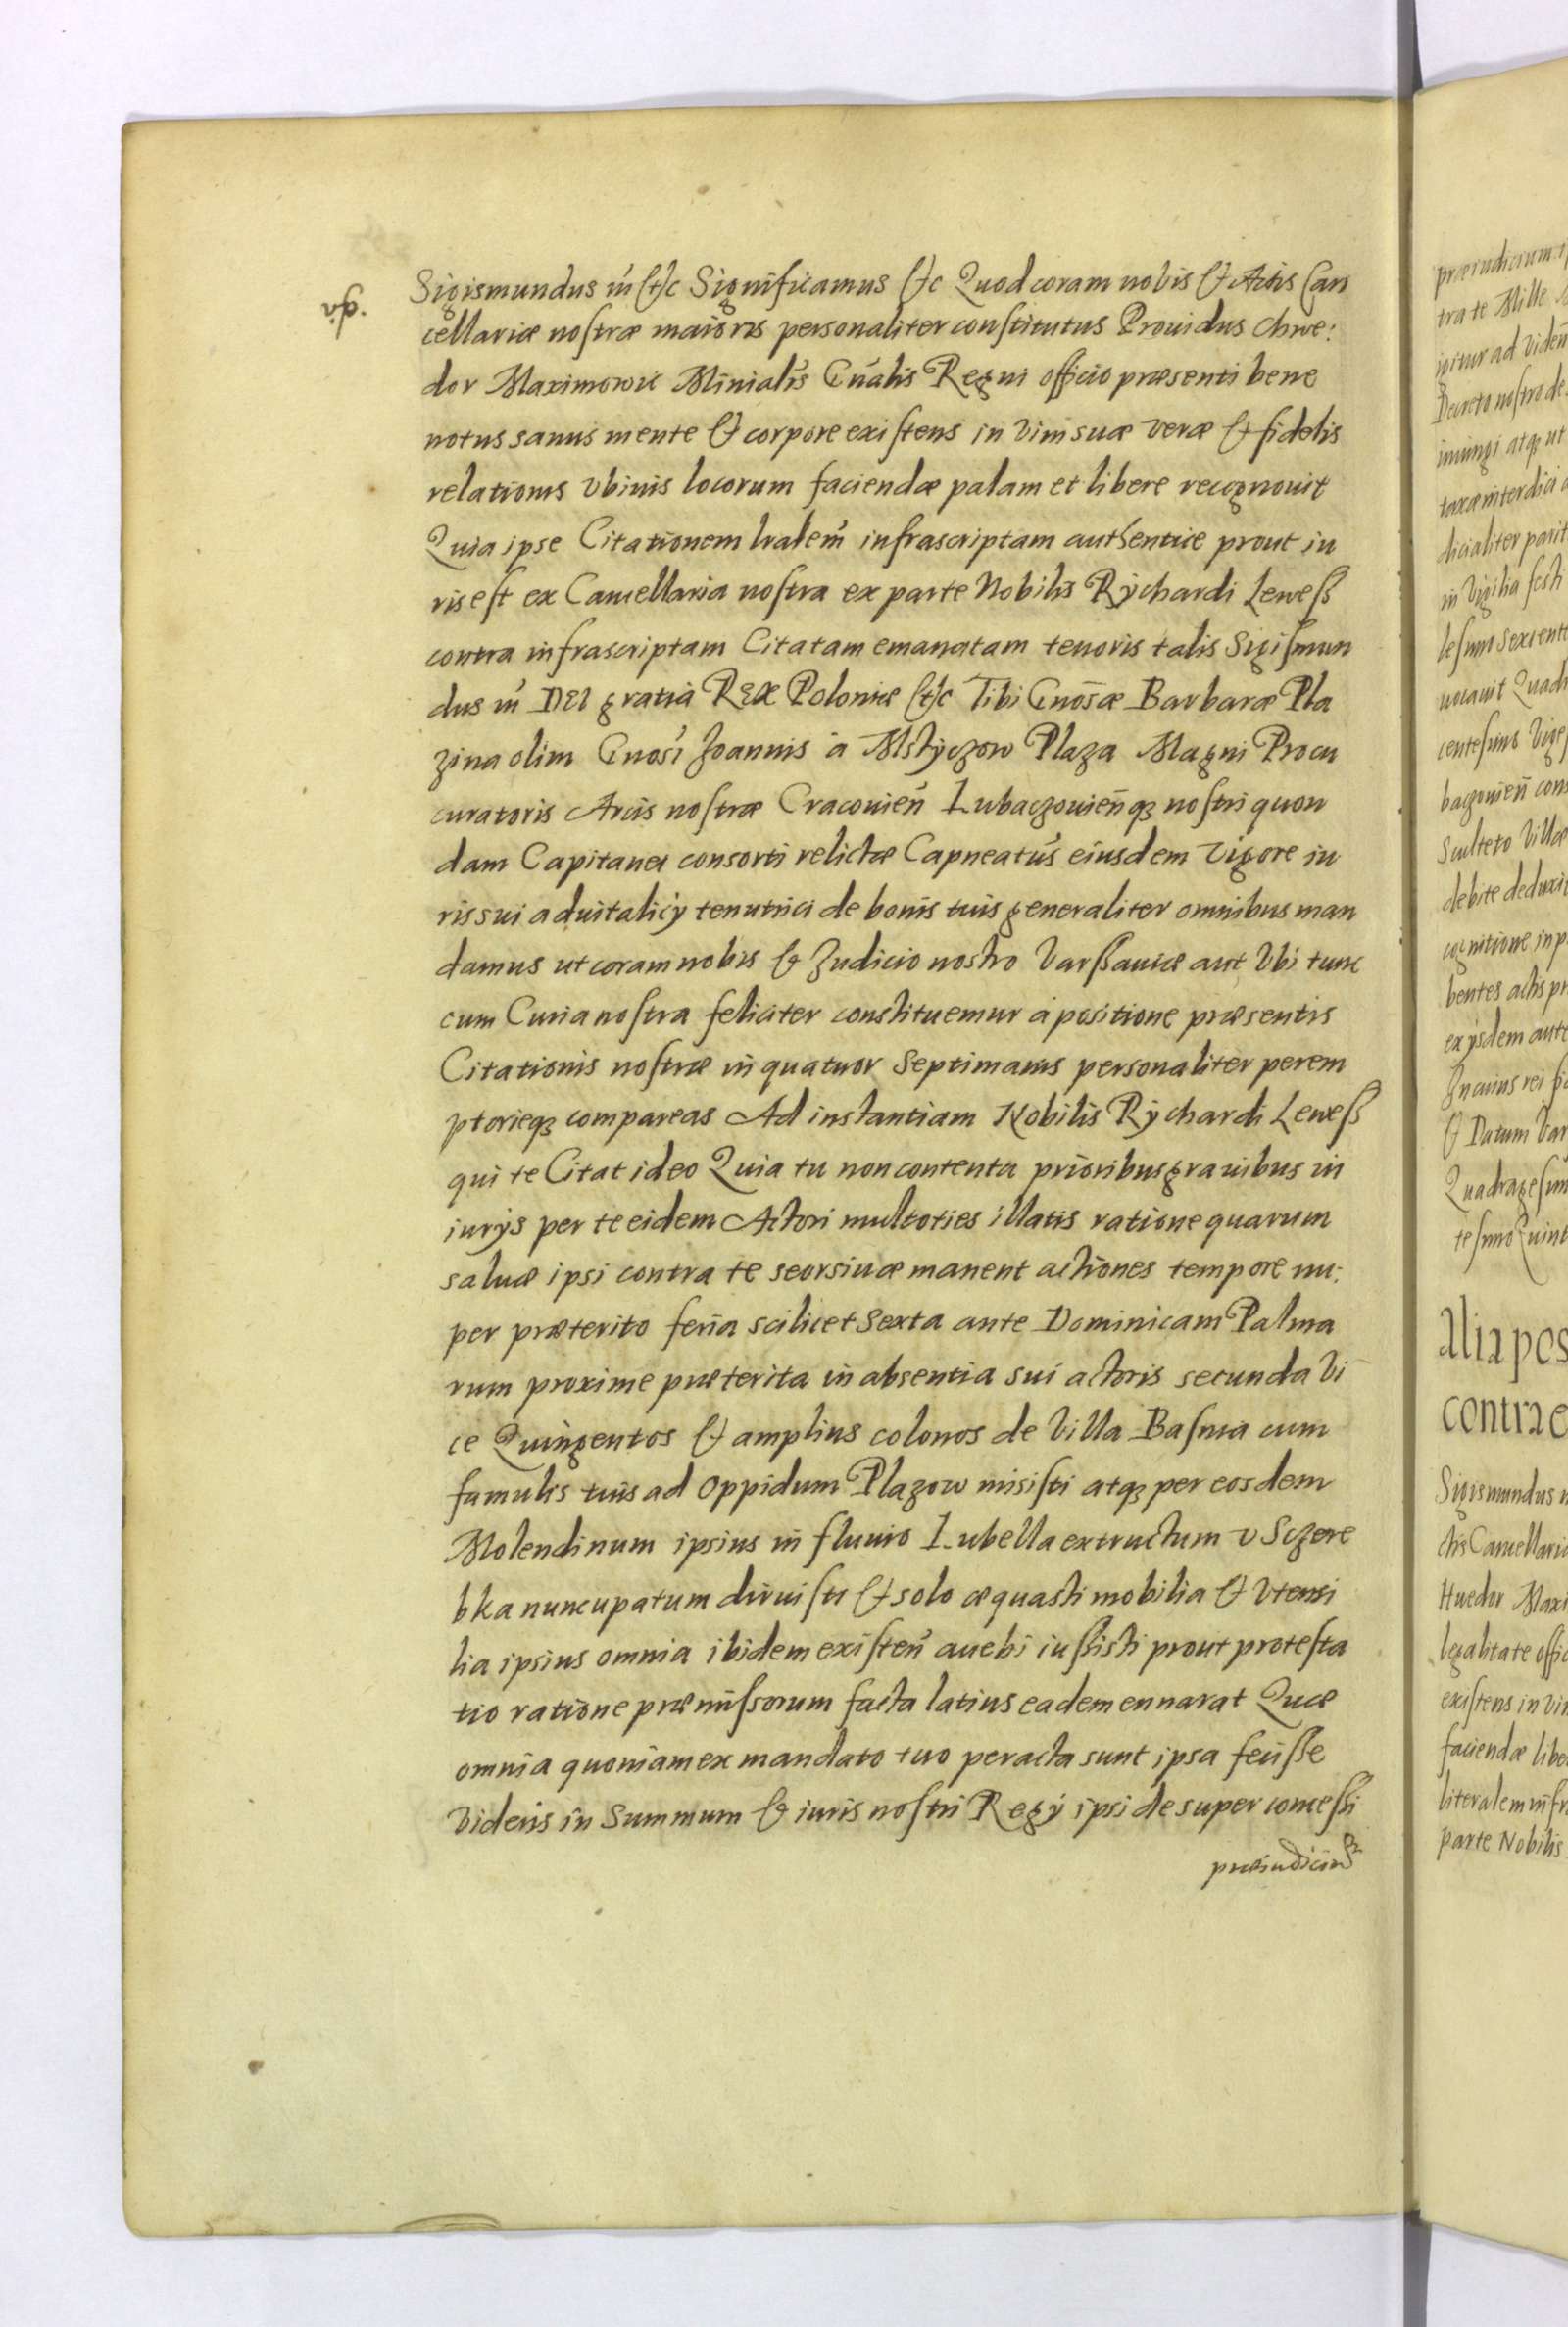 Sigismundus iii &c Significamus &c Quod coram nobis & Actis Can
cellariæ nostræ maioris personaliter constitutus Prouidus Chwe:
dor Maximowic Minialis Gnalis Regni officio præsenti bene
notus sanus mente & corpore existens in vim suæ veræ & fidelis
relationis vbiuis locorum faciendæ palam et libere recognouit
Quia ipse Citationem lralem infrascriptam authentice prout iu
ris est ex Cancellaria nostra ex parte Nobilis Rÿchardi Leweß
contra infrascriptam Citatam emanatam tenoris talis Sigismun
dus iii DEI gratia REX Poloniæ &c Tibi Gnosæ Barbaræ Pla
zina olim Gnosi Joannis a Mstÿczow Plaza Magni Procu
curatoris Arcis nostræ Cracouien Lubaczouienq nostri quon
dam Capitanei consorti relictæ Capneatus eiusdem vigore iu
ris sui aduitalicÿ tenutrici de bonis tuis generaliter omnibus man
damus ut coram nobis & Judicio nostro Varßauiæ aut Vbi tunc
cum Curia nostra feliciter constituemur a positione præsentis
Citationis nostræ in quatuor Septimanis personaliter perem
ptorieq compareas Ad instantiam Nobilis Rÿchardi Leweß
qui te Citat ideo Quia tu non contenta prioribus grauibus in
iurÿs per te eidem Actori multoties illatis ratione quarum
saluæ ipsi contra te seorsiuæ manent actiones tempore nu:
per præterito feria scilicet Sexta ante Dominicam Palma
rum proxime præterita in absentia sui actoris secunda Vi
ce Quingentos & amplius colonos de Villa Basnia cum
famulis tuis ad Oppidum Plazow misisti atq per eosdem
Molendinum ipsius in fluuio Lubella extructum v Sczere
bka nuncupatum diruisti & solo æquasti mobilia & Vtensi
lia ipsius omnia ibidem existen auehi iussisti prout protesta
tio ratione præmissorum facta latius eadem ennarat Quæ
omnia quoniam ex mandato tuo peracta sunt ipsa fecisse
Videris in Summum & iuris nostri Regÿ ipsi desuper concessi
præiudicium
præiudicium
tra te Mille
igitur ad viden
Decreto nostro de
iniungi atq ut
dicialiter parit
in Vigilia festi
uocauit Quadr
centesimo Vige
baczouien cons
Sculteto Villæ
debite deduxi
cognitione in p
bentes actis pr
ex ÿsdem aute
In cuius rei fi
& Datum Var
Quadragesim
tesimo Quint
Alia pos
contra e
Sigismundus
ctis Cancellari
Huedor Maxi
legalitate offic
existens in vi
faciendæ libe
literalem infr
parte Nobilis